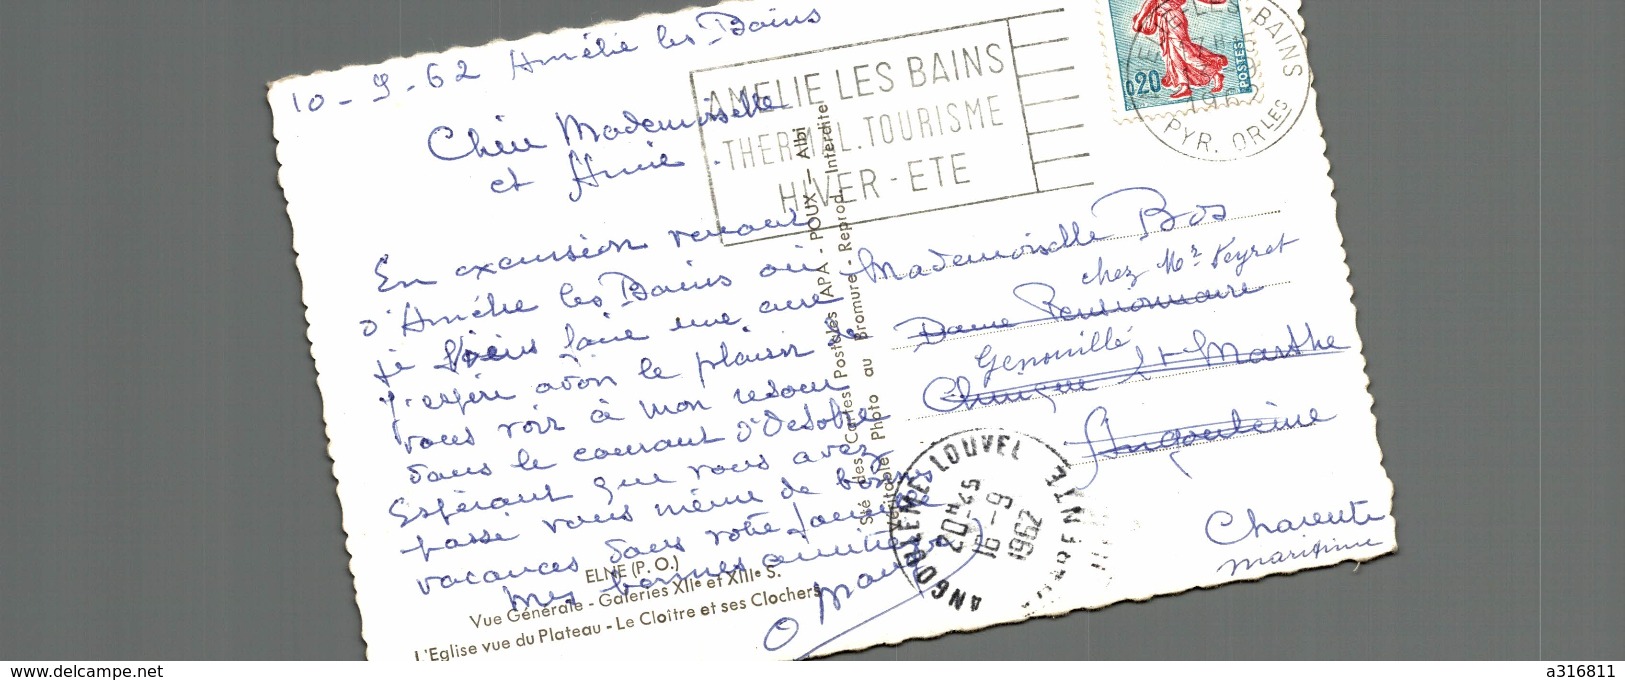 10-9-62 Amélie les Bains
Chère Mademoiselle
et Amie.
En excursion venant
d'Amélie les Bains où
je viens faire une cure
J'espère avoir le plaisir de
vous voir à mon retour
dans le courant d'Octobre
Espérant que vous avez
passé vous même de bonnes
vacances dans votre famille
mes bonnes amitiés
AMELIE LES BAINS
THERMAL. TOURISME
HIVER - ETE
0,20
POSTES
BAINS
PYR. ORLES
Mademoiselle Bos
chez Mr Peyrat
Dame Pensionnaire
Genouillé
Clinique Ste Marthe
Angoulême
Charente
maritime
ANGOULEME LOUVEL
20H45
16-9
1962
CHARENTE
Sté des Cartes Postales APA - POUX - Albi
Véritable Photo au Bromure - Reprod. Interdite
ELNE (P. O.)
Vue Générale - Galeries XIIe et XIIIe S.
L'Eglise vue du Plateau - Le Cloître et ses Clochers
www.delcampe.net
a316811